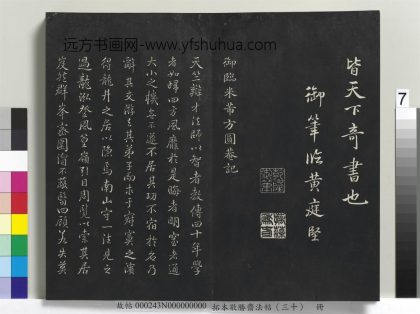 皆天下奇書也
御筆臨黃庭堅
御臨米芾方圓菴記
天竺辯才法師以智者教傳四十年學
者如嚮四方風靡於是晦者明窒者通
大小之機無不遂者不居其功不宿於名乃
辭其交游去其弟子而求于寂寞之濱
得龍井之居以隱焉南山守一往見之
過龍泓登風篁嶺引目周覽以索其居
岌然群峰密圍溜不蔽翳四顧若失莫
远方书画网-www.yfshuhua.com
故帖 000243N000000000 拓本敬勝齋法帖(三十) 冊
7
8